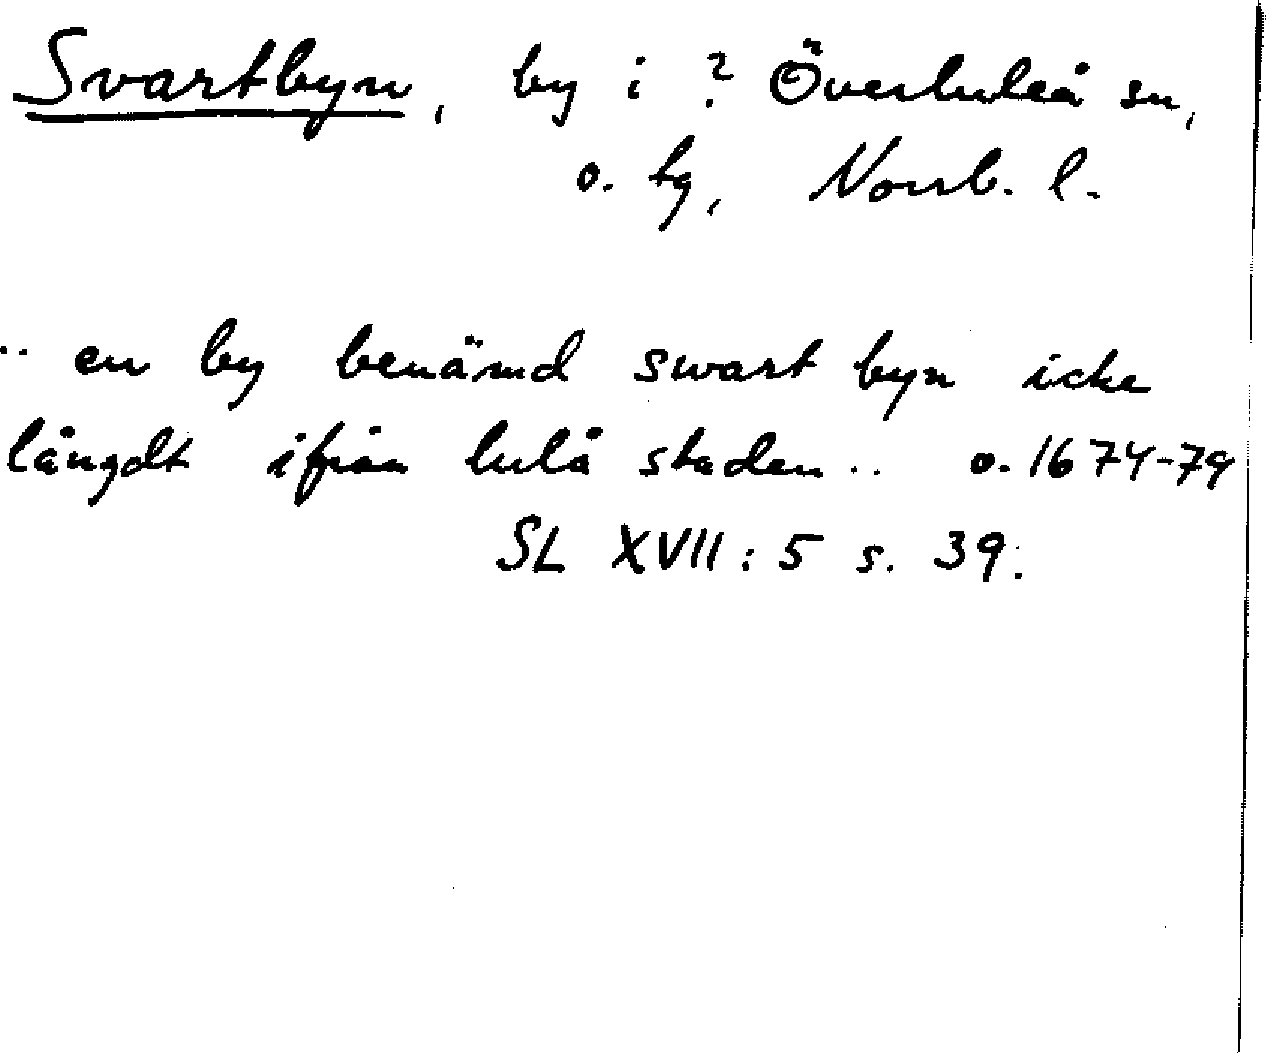 Svartbyn, by i ? Överluleå sn,
o. tg, Norrb. l.
.. en by benämd swart byn icke
långdt ifrån lulå staden .. o. 1674-79
SL XVII : 5 s. 39.